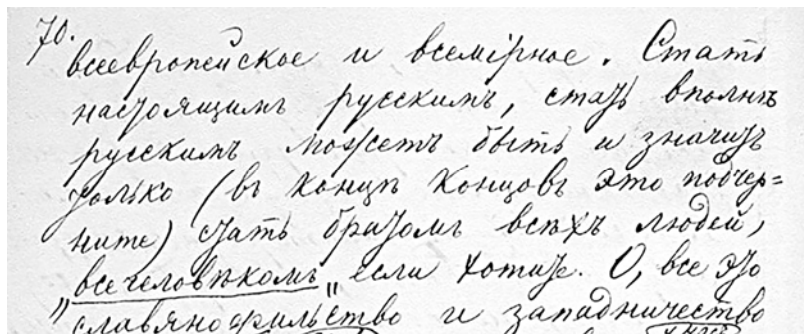 70.
всеевропейское и всемірное. Стать
настоящимъ русскимъ, стать вполнѣ
русскимъ можетъ быть и значитъ
только (въ концѣ концовъ это подчер=
ните) стать братомъ всѣхъ людей,
„всечеловѣкомъ„ если хотите. О, все это
славянофильство и западничество